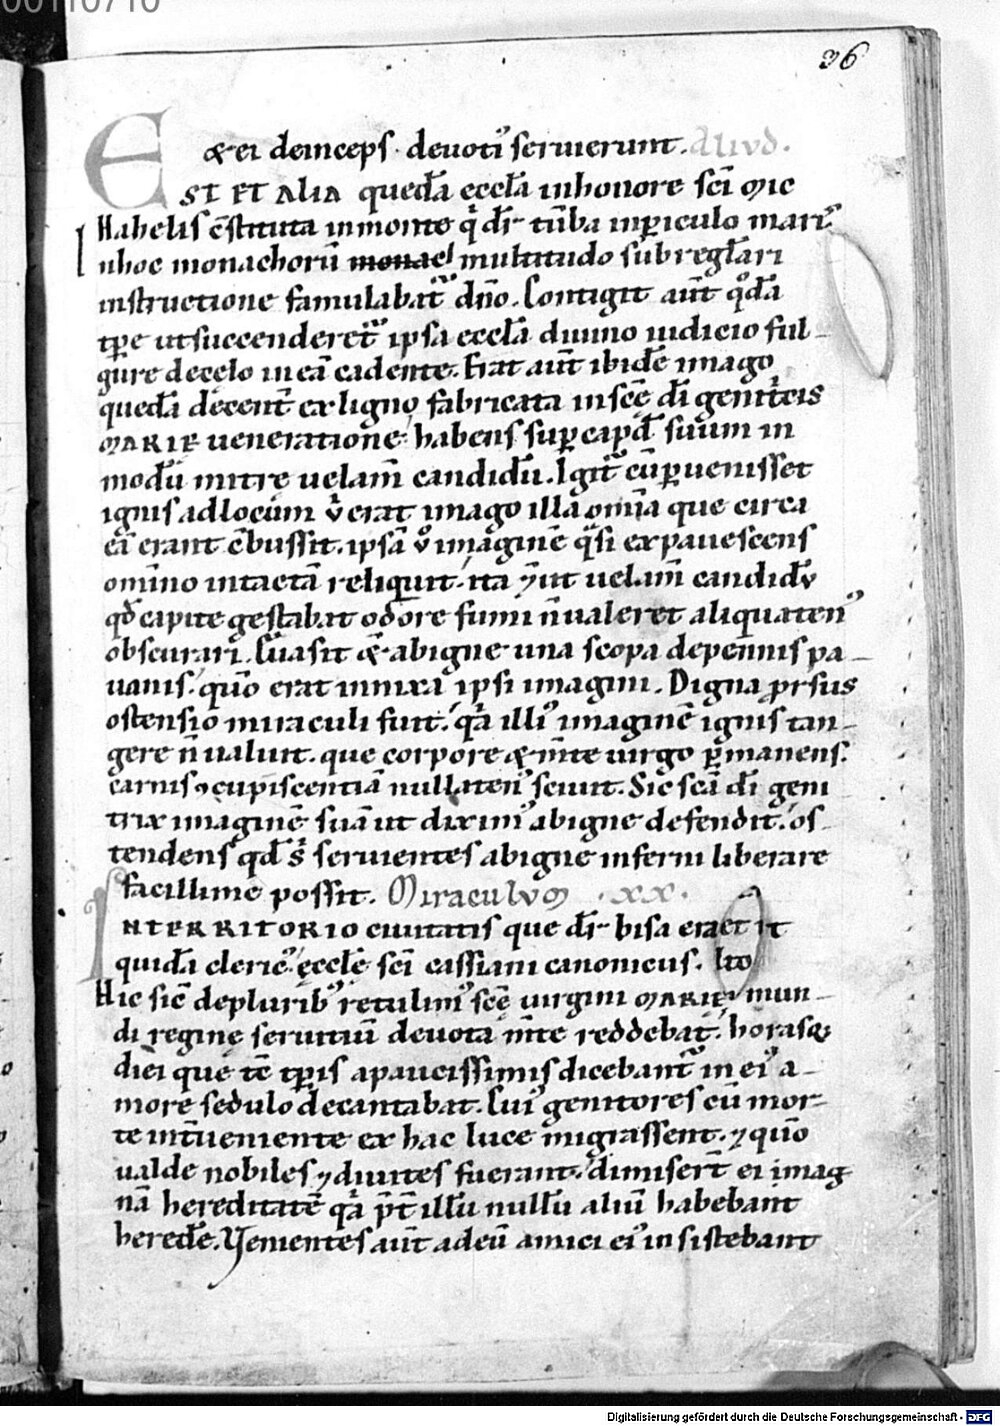 00110710
36
& ei deinceps · deuoti᷒ seruierunt. Aliud.
EST ET ALIA queda̅ eccl̅a inhonore sc̅i Mic
Habelis c̅stituta inmonte q̅ dr̅ tu̅ba inp̲iculo mari᷒
Inhoc monachoru̅ monac multitudo subregl̅ari
instructione famulabat᷒ dn̅o. Contigit aut̅ qᵒda̅
tp̅e utsuccenderet᷒ ipsa eccl̅a diuino iudicio ful-
gure decelo in ea̅ cadente. Erat aut̅ ibide̅ imago
queda̅ decent̅ exligno fabricata insce̅ di̅ genit̅cis
MARIE ueneratione, habens sup̲ cap̲d̅ suum in
modu̅ mitre uelam̅ candidu̅. Igit᷒ cu̅ p̲uenisset
ignis adlocum vͥ erat imago illa om̅ia que circa
ea̅ erant c̅bussit. ipsa̅ vᵒ imagine̅ qͣsi expauescens
om̅ino intacta̅ reliquit. ita ⁊ ut uelam̅ candidu̅
qd̅ capite gestabat odore fumi n̅ualeret aliquaten᷒
obscurari. Euasit & abigne una scopa depennis pa-
uanis. quo̅ erat innixa ipsi imagini. Digna prͦsus
ostensio miraculi fuit. qͣa illi᷒ imagine̅ ignis tan-
gere n̅ualuit. que corpore & m̅te uirgo p̲manens.
carnis ꝯcupiscentia̅ nullaten᷒ sciuit. Sic sc̅a di̅ geni
trix imagine̅ sua̅ ut dixim᷒ abigne defendit. os-
tendens qd̅ sͥ seruientes abigne inferni liberare
facillime possit. Miraculum · xx ·
INTERRITORIO ciuitatis que dr̅ bisa erat
quida̅ cleric᷒ eccle̅ sc̅i cassiani canonicus.
Hic sic̅ deplurib᷒ retulim᷒ sce̅ uirgini MARIE mun-
di regine seruitiu̅ deuota m̅te reddebat. horasq;
diei que te̅ tp̅ris apaucissimis dicebant᷒ in ei᷒ a-
more sedulo decantabat. Cui᷒ genitores cu̅ mor-
te int̅ueniente ex hac luce migrassent. ⁊ quo̅
ualde nobiles ⁊ diuites fuerant. dimiser̅t ei mag
na̅ hereditate̅ qͣa p̅t̅ illu̅ nullu̅ aliu̅ habebant
herede̅. Uenientes aut̅ adeu̅ amici ei᷒ insistebant
Digitalisierung gefördert durch die Deutsche Forschungsgemeinschaft - DFG